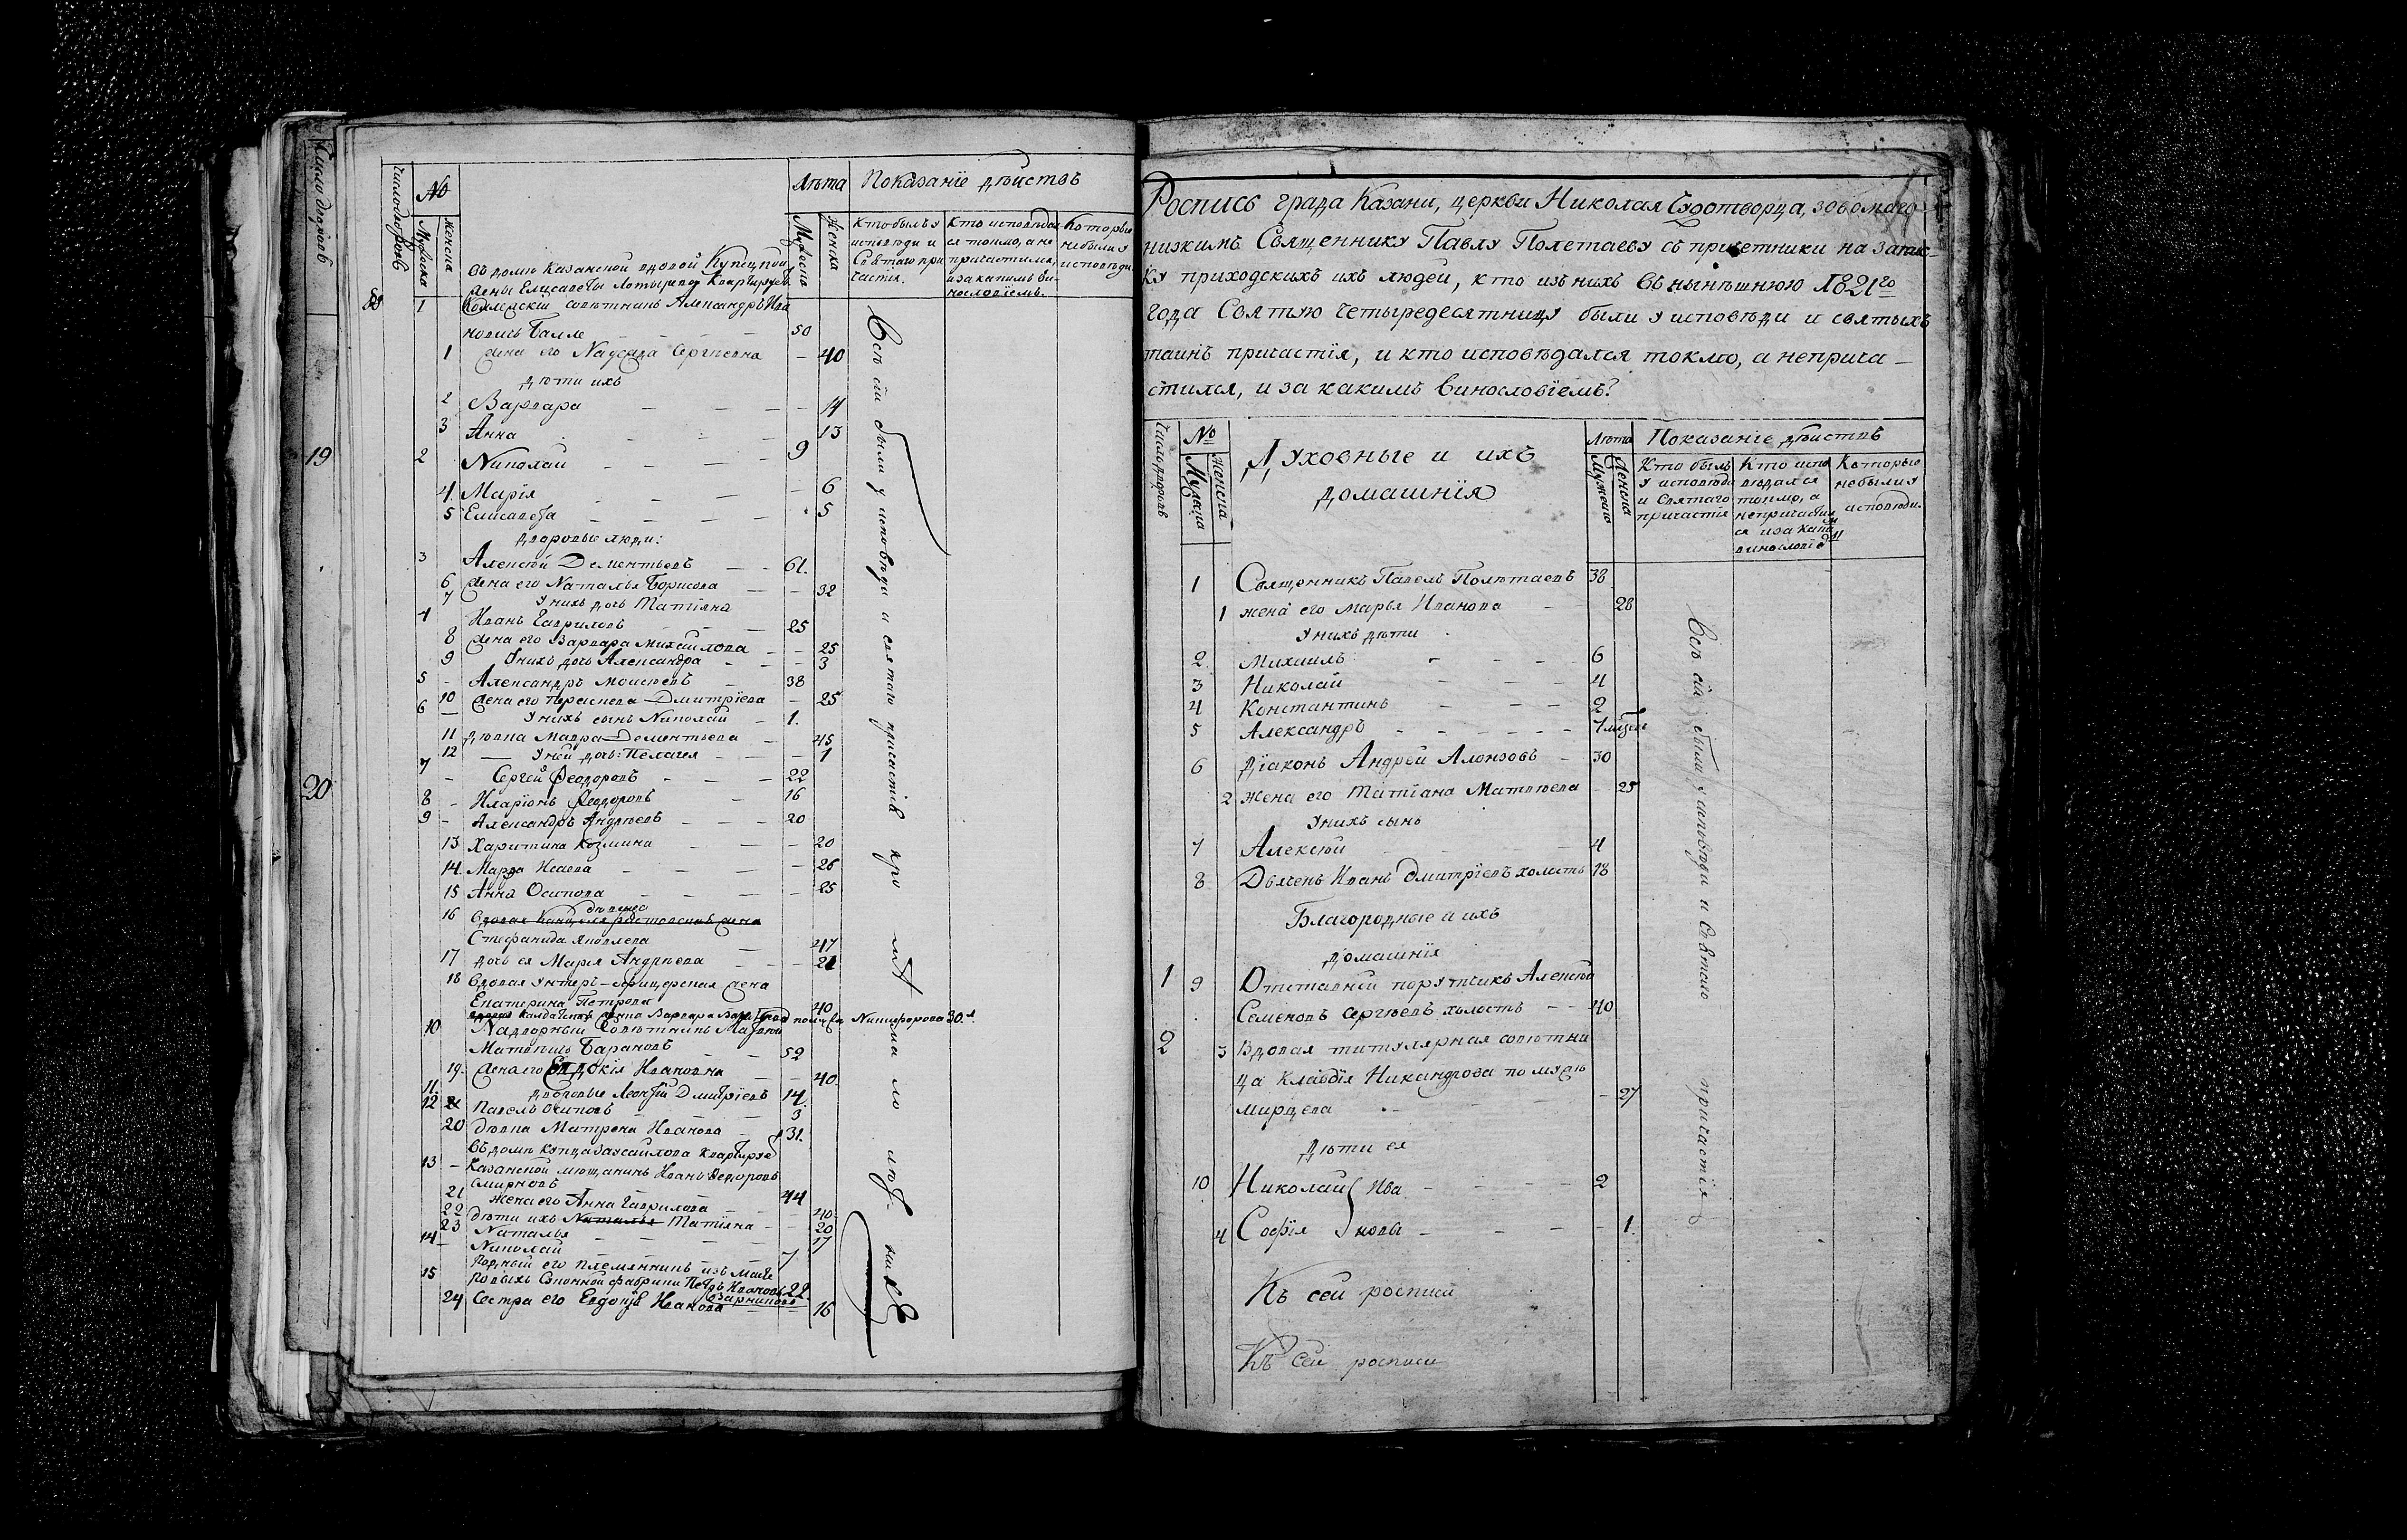 Число дворовъ
19
20
Число дворовъ
№
Мужеска
Женска
Лѣта
Показанïе дѣйствъ
Мужеска
Женска
Кто былъ у
исповѣди и
Святаго при
частïя.
Кто исповѣдал
ся токмо, а не
причастился,
и за какимъ ви-
нословïемъ.
Которые
небыли у
исповѣди
Въ домѣ Казанской вдовой Купецкой
жены Елисаветы
1 Коллежскïй совѣтникъ Александръ Ива
новичь Балле 50
1 жена его Надежда Сергѣевна 40
дѣти ихъ
2 Варвара 14
3 Анна 13
2 Николай 9
4. Марïя 6
5 Елисавета 5
Дворовые люди:
3 Алексѣй Дементьевъ 61.
6 жена его Наталья Борисова 32
7 У нихъ дочь Татïяна
4 Иванъ Гавриловъ 25
8 жена его Варвара Михайлова 25
9 У нихъ дочь Александра 3
5 Александръ Моисѣевъ 38
10 жена его Параскева Дмитрïева 25
6 У нихъ сынъ Николай 1.
11 дѣвка Мавра Дементьева 45
12 У ней дочь: Пелагея 1
7 Сергѣй Феодоровъ 22
8 Иларïонъ Феодоровъ 16
9 Александръ Андрѣевъ 20
13 Харитина Козмина 20
14. Марѳа Исаева 26
15 Анна Осипова 25
16 Вдовая
Стефанида Яковлева 47
17 дочь ея Марïя Андрѣева 21
18 Вдовая Унтеръ-офицерская жена
Екатерина Петрова 40
Никифорова 30.
10 Надворный Совѣтникъ Матвей
Матвѣичь Барановъ 52
19. жена его Евдокïя Ивановна 40.
11. дворовые Леонтïй Дмитрïевъ 14.
12 Павелъ Осиповъ 3
20 дѣвка Матрена Иванова 31.
Въ домѣ купца
13 Казанской мѣщанинъ Иванъ Ѳедоровъ
Смирновъ 44
21 жена его Анна Гаврилова 40
22 дѣти ихъ Наталья Татïяна 20
23 Наталья 17
14 Николай 7
15 Родный его племянникъ изъ масте
ровыхъ Суконной фабрики Петръ Ивановъ 22
24 Сестра его Евдокïя Иванова 16
Всѣ сïи были у исповѣди и святаго причастïя кромѣ
Роспись града Казани, церкви Николая Чудотворца, зовомаго
низкимъ Священнику Павлу Полетаеву съ причетники на запис-
ку приходскихъ ихъ людей, кто изъ нихъ въ нынѣшнюю 1821го
года Святую Четыредесятницу были у исповѣди и святыхъ
таинъ причастïя, и кто исповѣдался токмо, а неприча-
стился, и за какимъ винословïемъ?
Число дворовъ
№
Мужеска
Женска
Духовные и ихъ
домашнïя
Лѣта
Мужеско
Женска
Показанïе дѣйствъ
Кто былъ
у исповѣди
и Святаго
причастïя
Кто испо
вѣдался
токмо, а
непричастил
ся и за каким
винословïемъ
Которые
небыли у
исповѣди.
1 Священникъ Павелъ Полѣтаевъ 38
1 жена его Марья Иванова 28
У нихъ дѣти
2. Михаилъ 6
3 Николай 4
4 Константинъ 2
5 Александръ
6 Дïаконъ Андрей Алонзовъ 30
2 жена его Татïана Матвѣева 25
У нихъ сынъ
7 Алексѣй 4
8 Дьячекъ Иванъ Дмитрïевъ холостъ 18
Благородные и ихъ
домашнïя
1 9 Отставной порутчикъ Алексѣй
Семеновъ Сергѣевъ холостъ 40
2 3 Вдовая титулярная совѣтни
ца Клавдïя Никандрова по мужѣ
Мирцева 27
Дѣти ея
10 Николай Ива 2
4 Софïя новы 1.
Къ сей росписи
Къ сей росписи
Всѣ сïи были у исповѣди и Святаго причастïя